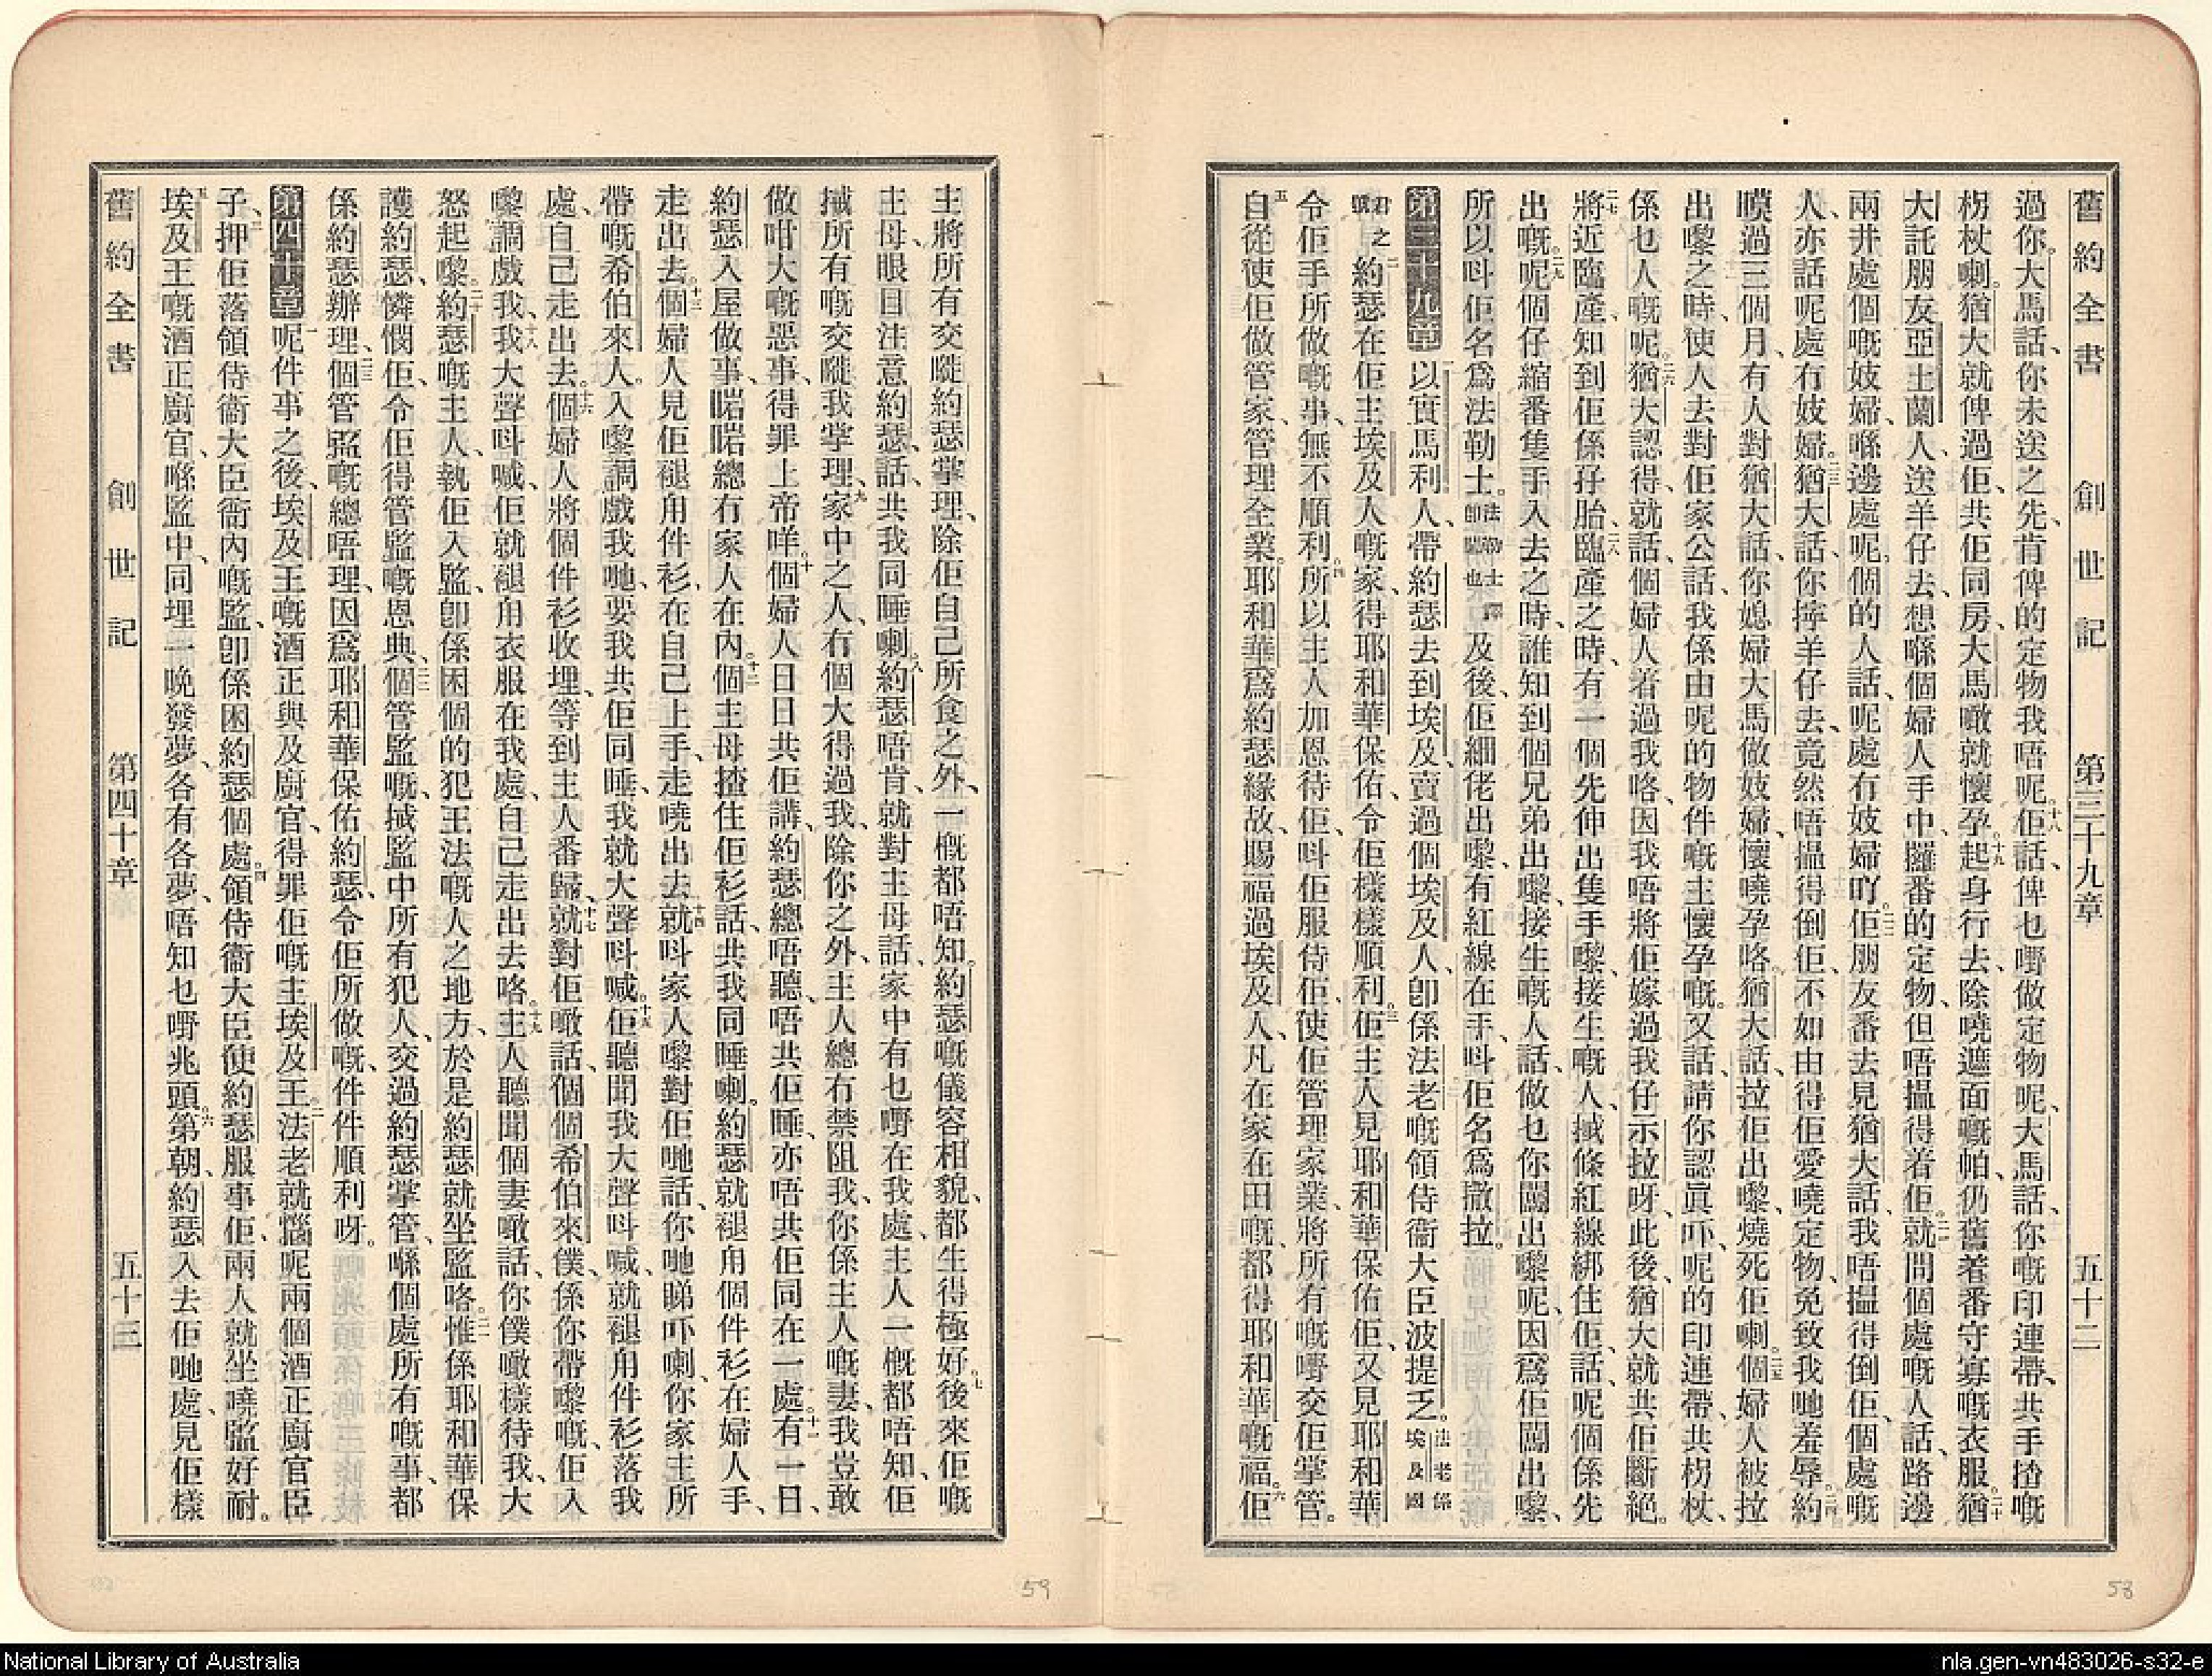 舊約全書 創世記 第三十九章 五十二
過你。大馬話、你未送之先、肯俾的定物我唔呢。十八佢話、俾乜嘢做定物呢、大馬話、你嘅印連帶、共手揸嘅
枴杖喇。猶大就俾過佢、共佢同房、大馬噉就懷孕。十九起身行去、除嘵遮面嘅帕、仍舊着番守寡嘅衣服。二十猶
大託朋友亞土蘭人、送羊仔去、想喺個婦人手中、攞番的定物、但唔搵得着佢。二一就問個處嘅人話、路邊
兩井處個嘅妓婦、喺邊處呢。個的人話、呢處冇妓婦吖。二二佢朋友番去見猶大話、我唔搵得倒佢、個處嘅
人、亦話呢處冇妓婦。二三猶大話、你擰羊仔去、竟然唔搵得倒佢、不如由得佢愛嘵定物、免致我哋羞辱。二四約
嘆過三個月、有人對猶大話、你媳婦大馬做妓婦、懷嘵孕咯。猶大話、拉佢出嚟、燒死佢喇。二五個婦人被拉
出嚟之時、使人去對佢家公話、我係由呢的物件嘅主懷孕嘅。又話、請你認眞吓、呢的印連帶、共枴杖、
係乜人嘅呢。二六猶大認得、就話、個婦人着過我咯、因我唔將佢嫁過我仔示拉呀、此後猶大就共佢斷絕。
二七將近臨產、知到佢係孖胎、二八臨產之時、有一個先伸出隻手嚟、接生嘅人、搣條紅線綁住佢、話、呢個係先
出嘅。二九呢個仔縮番隻手入去之時、誰知到個兄弟出嚟、接生嘅人話、做乜你闖出嚟呢、因爲佢闖出嚟、
所以呌佢名爲法勒士。法勒士譯卽闖也及後、佢細佬出嚟、有紅線在手、呌佢名爲撒拉。
第三十九章 一以實馬利人、帶約瑟去到埃及、賣過個埃及人、卽係法老嘅領侍衞大臣波提乏。法老係埃及國
君之號二約瑟在佢主埃及人嘅家、得耶和華保佑、令佢樣樣順利。三佢主人見耶和華保佑佢、又見耶和華
令佢手所做嘅事、無不順利。四所以主人加恩待佢、呌佢服侍佢、使佢管理家業、將所有嘅嘢交佢掌管。
五自從使佢做管家、管理全業。耶和華爲約瑟緣故、賜福過埃及人、凡在家在田嘅、都得耶和華嘅福。六佢
58
主將所有交嘥約瑟掌理、除佢自己所食之外、一概都唔知。約瑟嘅儀容相貌、都生得極好。七後來佢嘅
主母、眼目注意約瑟、話、共我同睡喇。八約瑟唔肯、就對主母話、家中有乜嘢在我處、主人一概都唔知、佢
搣所有嘅交嘥我掌理、九家中之人、冇個大得過我、除你之外、主人總冇禁阻我、你係主人嘅妻、我豈敢
做咁大嘅惡事、得罪上帝咩。十個婦人日日共佢講、約瑟總唔聽、唔共佢睡、亦唔共佢同在一處。十一有一日、
約瑟入屋做事、啱啱總冇家人在內。十二個主母揸住佢衫話、共我同睡喇。約瑟就褪甩個件衫在婦人手、
走出去。十三個婦人見佢褪甩件衫、在自己上手、走嘵出去、十四就呌家人嚟、對佢哋話、你哋睇吓喇、你家主所
帶嘅希伯來人。入嚟調戲我哋、要我共佢同睡、我就大聲呌喊。十五佢聽聞我大聲呌喊、就褪甩件衫落我
處、自己走出去。十六個婦人將個件衫收埋、等到主人番歸、十七就對佢噉話、個個希伯來僕、係你帶嚟嘅、佢入
嚟調戲我、十八我大聲呌喊、佢就褪甩衣服在我處、自己走出去咯。十九主人聽聞個妻噉話、你僕噉樣待我、大
怒起嚟。二十約瑟嘅主人、執佢入監、卽係困個的犯王法嘅人之地方、於是約瑟就坐監咯。二一惟係耶和華保
護約瑟、憐憫佢、令佢得管監嘅恩典、二二個管監嘅、搣監中所有犯人、交過約瑟掌管、喺個處所有嘅事、都
係約瑟辦理、二三個管監嘅總唔理、因爲耶和華保佑約瑟、令佢所做嘅、件件順利呀。
第四十章 一呢件事之後、埃及王嘅酒正與及廚官、得罪佢嘅主埃及王。二法老就惱呢兩個酒正廚官臣
子、三押佢落領侍衞大臣衙內嘅監、卽係困約瑟個處。四領侍衞大臣使約瑟服事佢、兩人就坐嘵監好耐。
五埃及王嘅酒正廚官、喺監中、同埋一晚發夢、各有各夢、唔知乜嘢兆頭。六第朝、約瑟入去佢哋處、見佢樣
舊約全書 創世記 第四十章 五十三
59
National Library of Australia
nla.gen-vn483026-s32-e